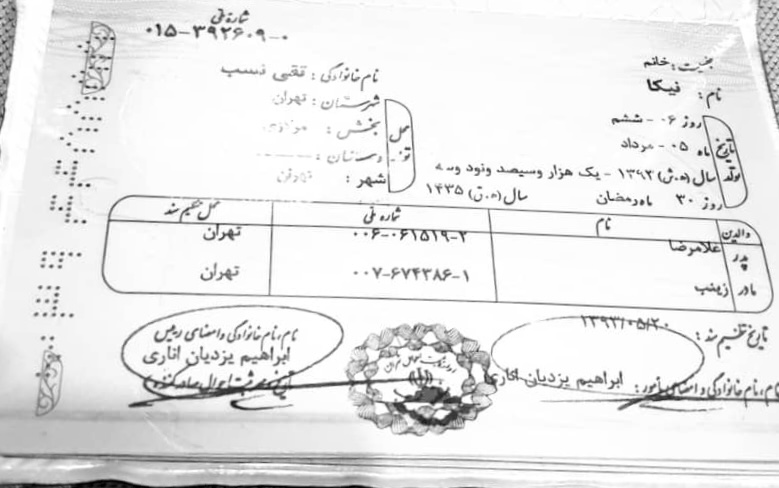 شماره ملی
۰۱۵-۳۹۲۶۰۹-۰
جنسیت: خانم
نام خانوادگی: نقبی نسب
نام: نیکا
شهرستان: تهران
روز ۰۶ - ششم
بخش: مرکزی
تاریخ تولد
ماه ۰۵ - مرداد
محل تولد
دهستان: -----
سال (ه.ش) ۱۳۹۳ - یک هزار و سیصد و نود و سه
شهر: تهران
روز ۳۰ ماه رمضان سال (ه.ق) ۱۴۳۵
والدین نام شماره ملی محل تنظیم سند
پدر غلامرضا ۰۰۶-۰۶۱۵۱۹-۲ تهران
مادر زینب ۰۰۷-۶۷۴۳۸۶-۱ تهران
تاریخ تنظیم سند: ۱۳۹۳/۰۵/۲۰
نام، نام خانوادگی و امضای مأمور: ابراهیم یزدیان اناری
نام، نام خانوادگی و امضای رئیس
ابراهیم یزدیان اناری
ثبت احوال صادرکننده